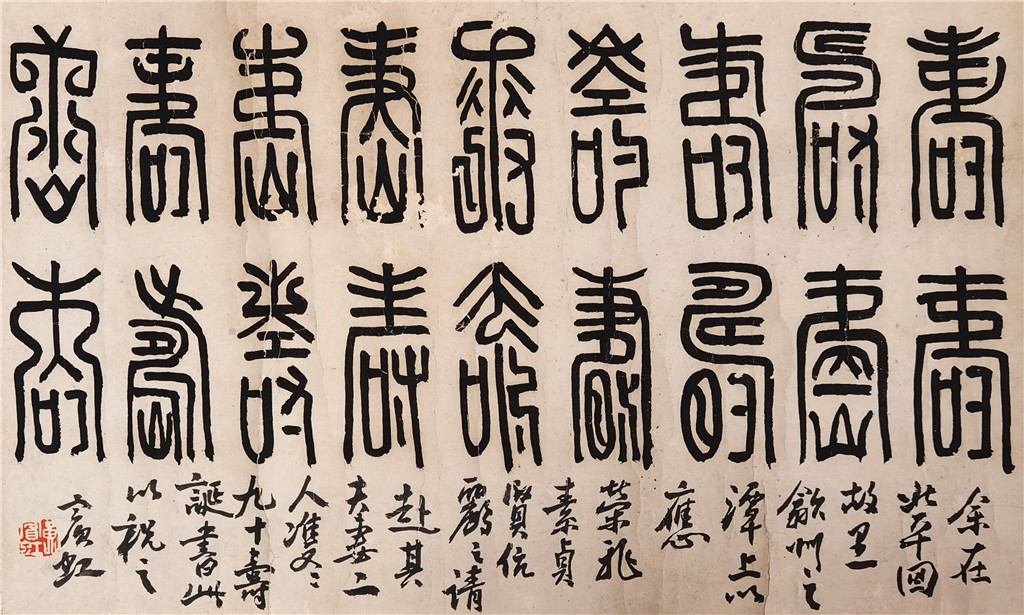 壽壽壽壽壽壽壽壽壽
壽壽壽壽壽壽壽壽壽
余在
北平回
故里
歙州之
潭上以
應
榮飛
素貞
賢伉
儷之請
赴其
夫妻二
人雙〻
九十壽
誕書此
以祝之
賓虹